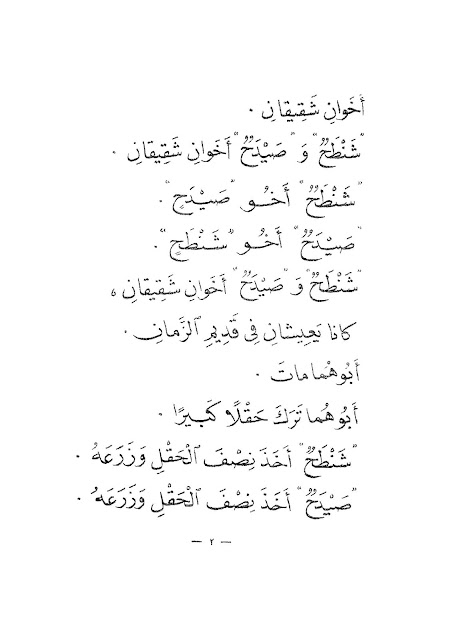 أَخَوانِ شَقِيقانِ .
"شَنْطَحٌ" وَ "صَيْدَحٌ" أَخَوانِ شَقِيقانِ .
"شَنْطَحٌ" أَخُـو "صَيْدَحٍ" .
"صَيْدَحٌ" أَخُـو "شَنْطَحٍ" .
"شَنْطَحٌ" وَ "صَيْدَحٌ" أَخَوانِ شَقِيقانِ ،
كانا يَعِيشانِ فِى قَدِيمِ ٱلزَّمانِ .
أَبُوهُما ماتَ .
أَبُوهُما تَرَكَ حَقْلًا كَبِيرًا .
"شَنْطَحٌ" أَخَذَ نِصْفَ ٱلْحَقْلِ وَزَرَعَهُ .
"صَيْدَحٌ" أَخَذَ نِصْفَ ٱلْحَقْلِ وَزَرَعَهُ .
— ٢ —